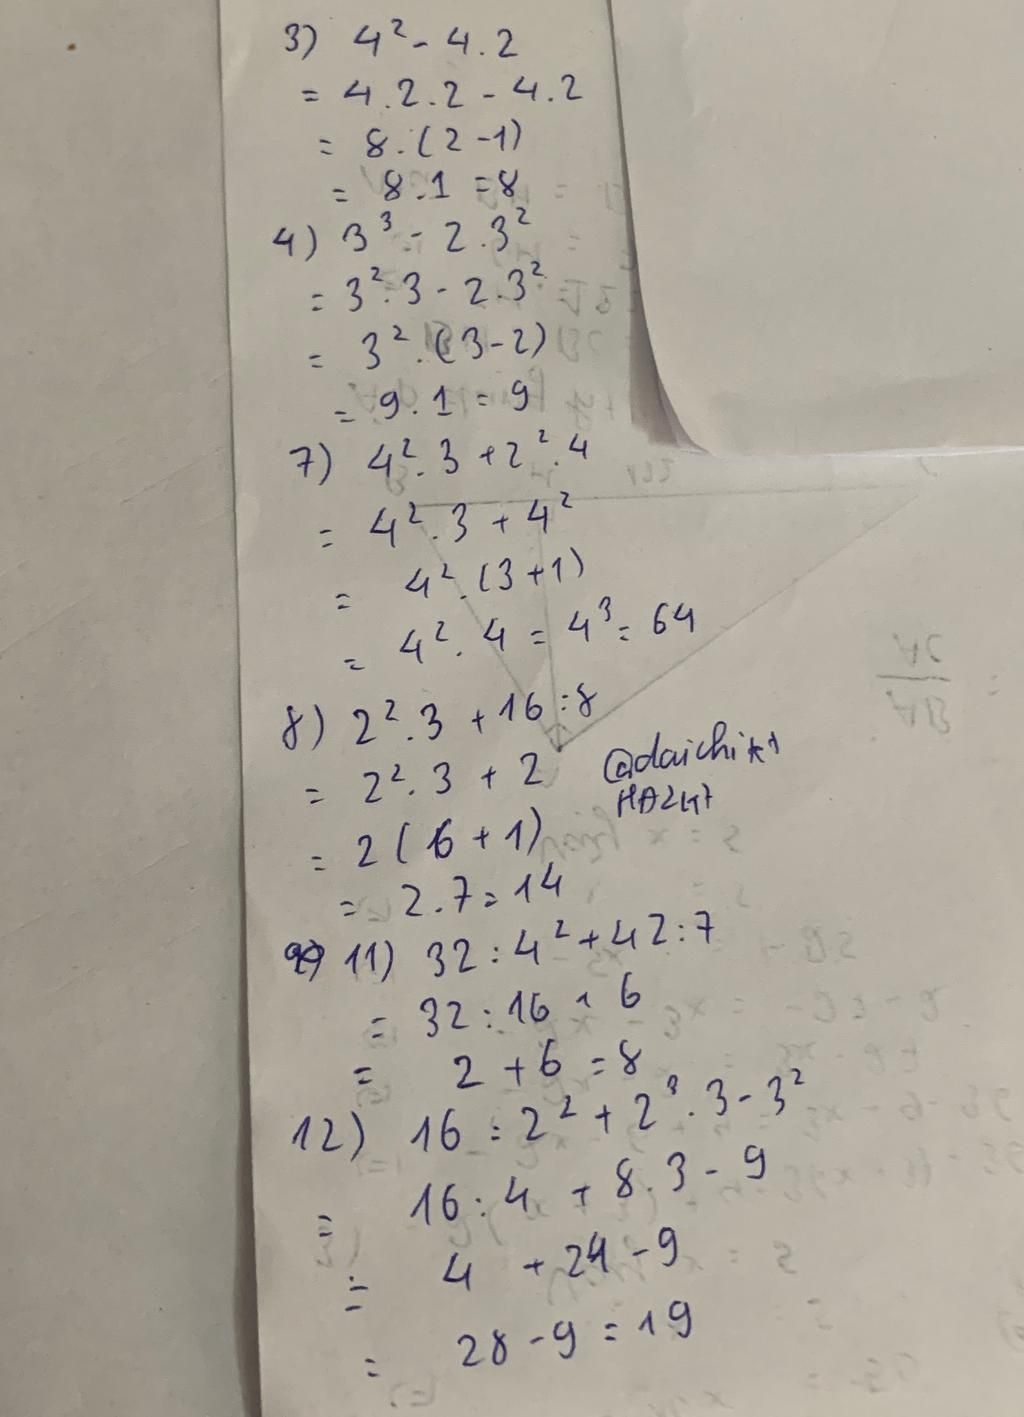 3) 4² - 4.2
= 4.2.2 - 4.2
= 8.(2-1)
= 8.1 = 8
4) 3³ - 2.3²
= 3².3 - 2.3²
= 3².(3-2)
= 9.1 = 9
7) 4².3 + 2².4
= 4².3 + 4²
= 4².(3+1)
= 4².4 = 4³ = 64
8) 2².3 + 16:8
= 2².3 + 2
= 2(6+1)
= 2.7 = 14
11) 32:4² + 42:7
= 32:16 + 6
= 2 + 6 = 8
12) 16:2² + 2³.3 - 3²
= 16:4 + 8.3 - 9
= 4 + 24 - 9
= 28 - 9 = 19